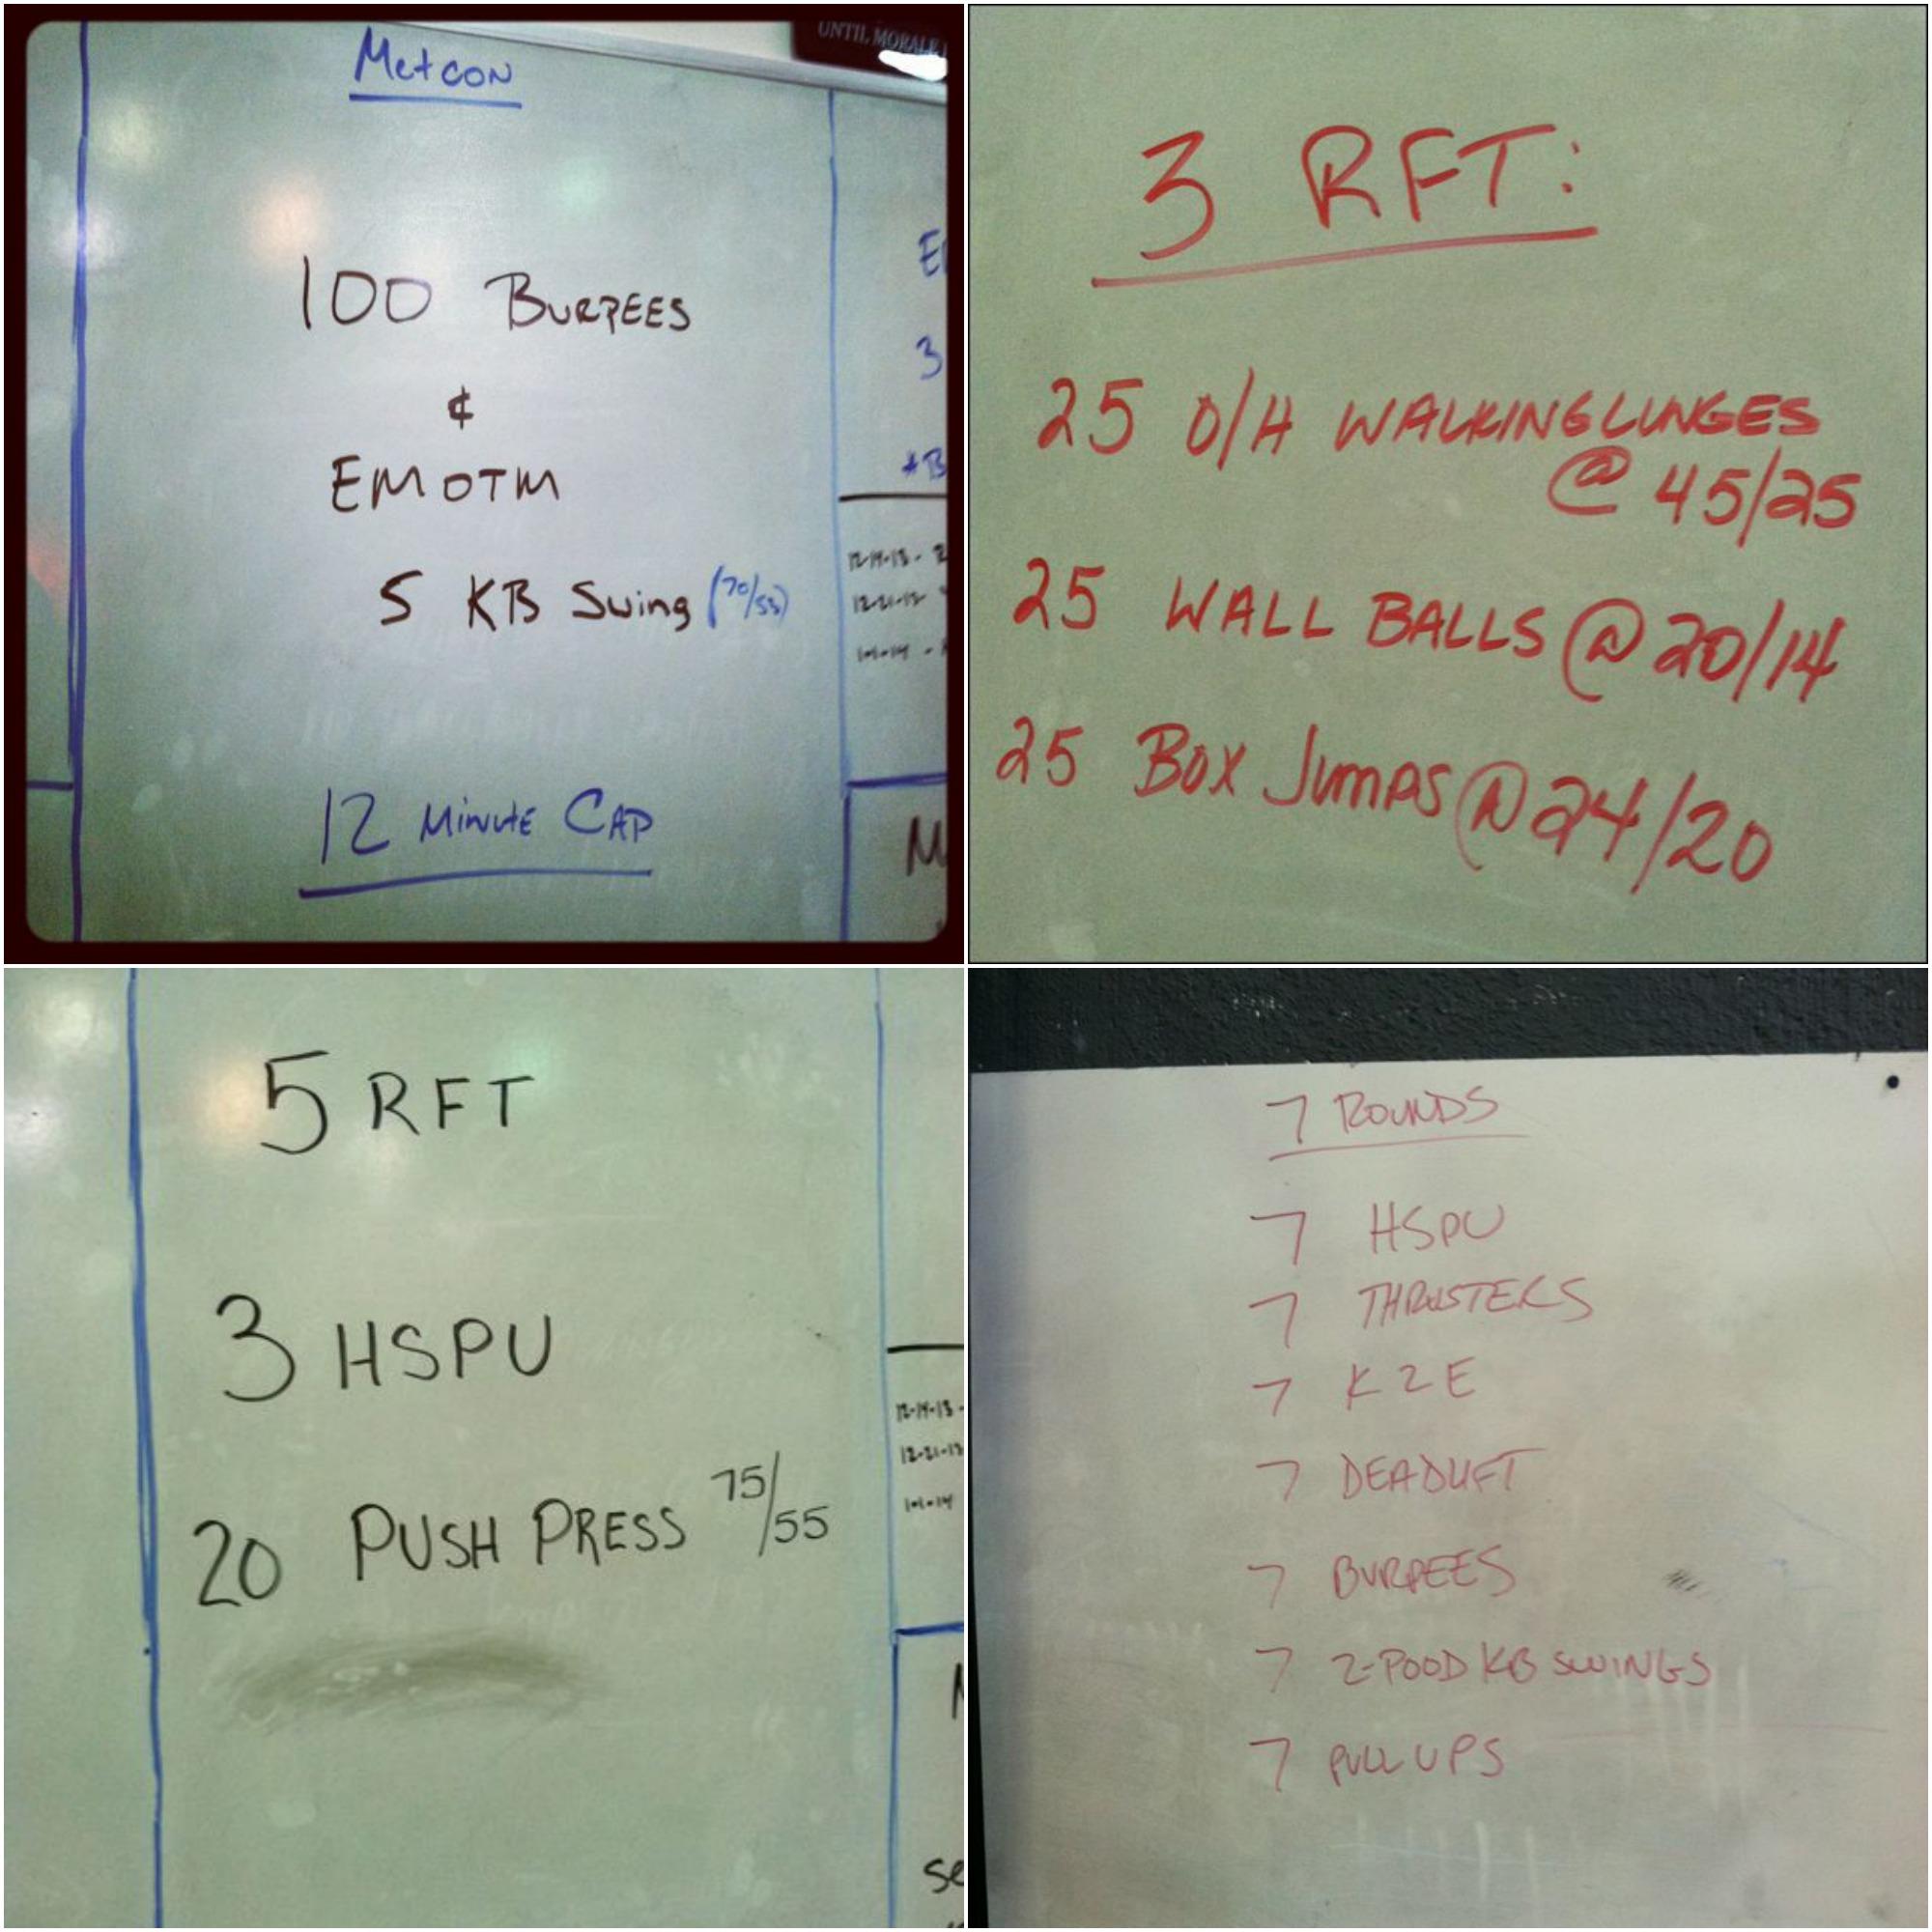 UNTIL MORALE
Metcon
100 BURPEES
&
EMOTM
5 KB Swing (70/53)
12 Minute CAP
3
12-14-13
12-21-13
1-1-14
3 RFT:
25 O/H WALKING LUNGES
@ 45/25
25 WALL BALLS @ 20/14
25 BOX JUMPS @ 24/20
5 RFT
3 HSPU
20 PUSH PRESS 75/55
12-14-13
12-21-13
1-1-14
7 ROUNDS
7 HSPU
7 THRUSTERS
7 K2E
7 DEADLIFT
7 BURPEES
7 2-POOD KB SWINGS
7 PULL UPS